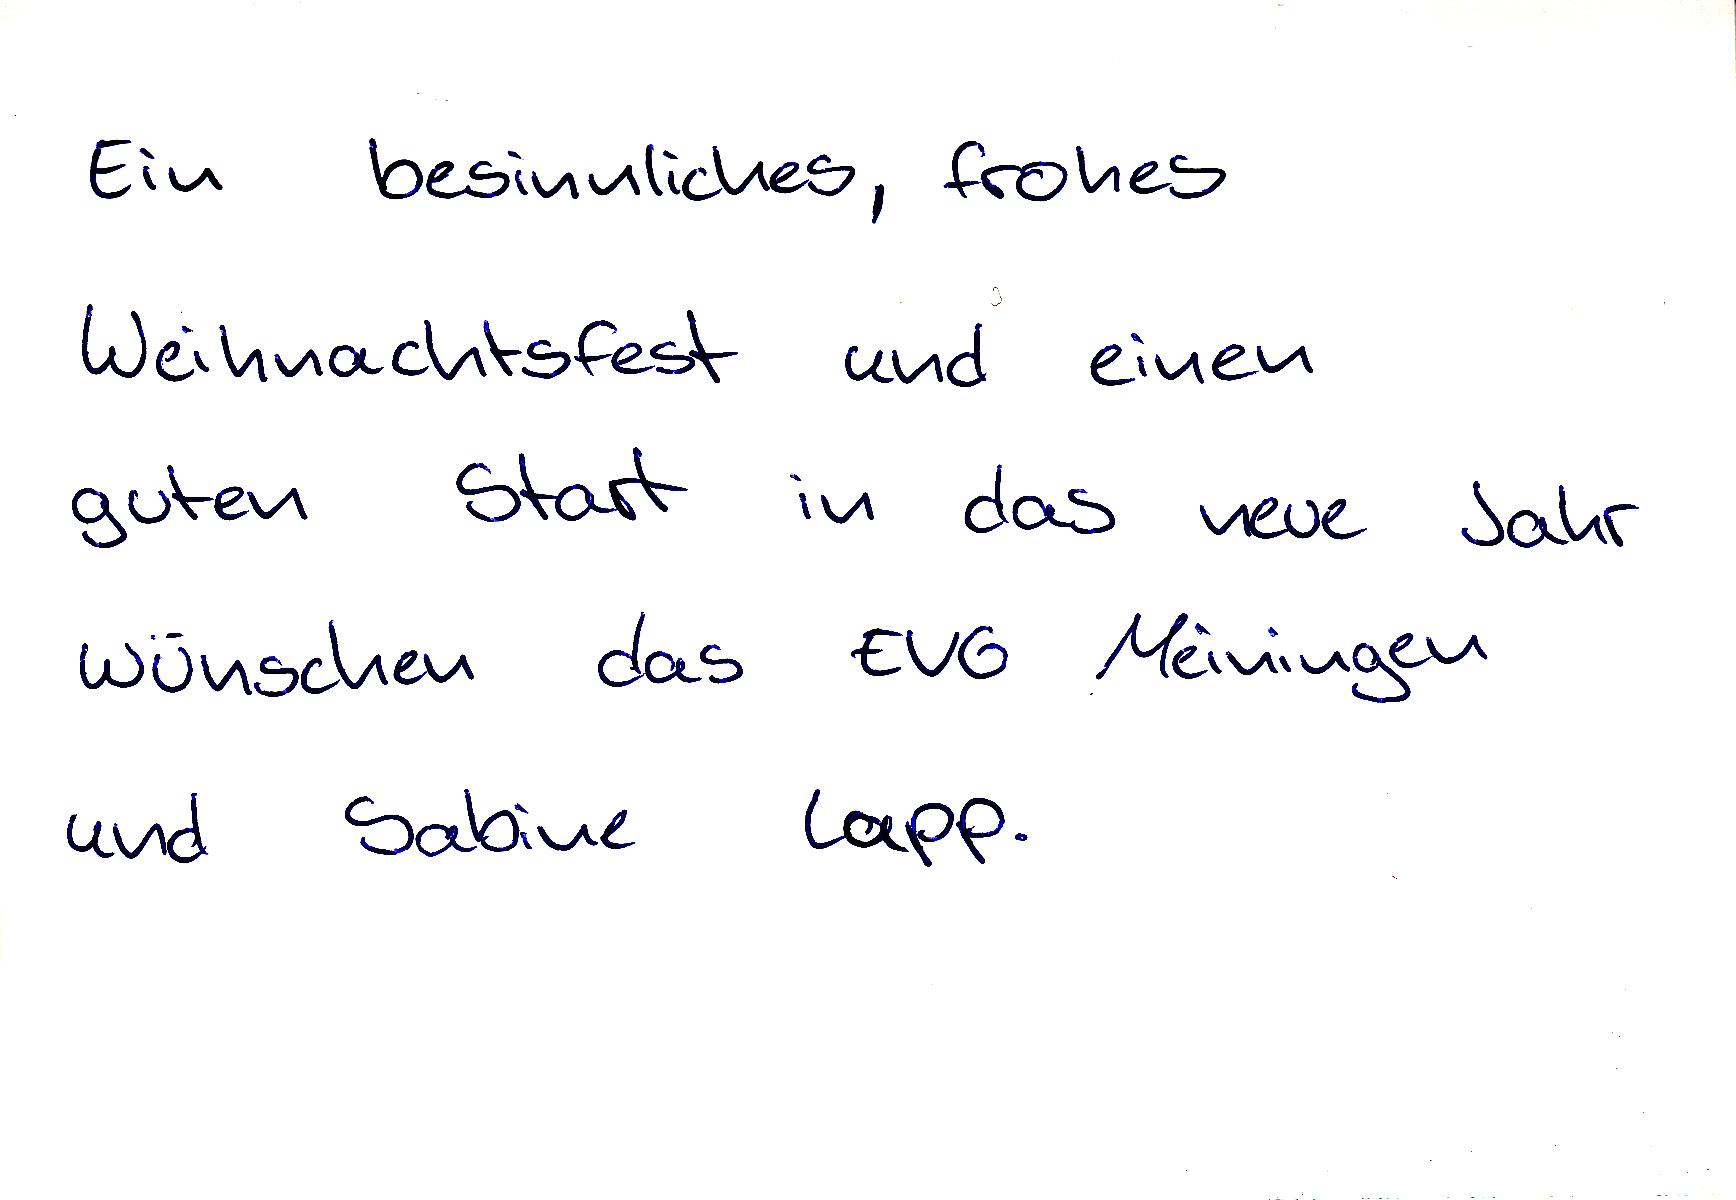 Ein besinnliches, frohes
Weihnachtsfest und einen
guten Start in das neue Jahr
wünschen das EVG Meiningen
und Sabine Lapp.